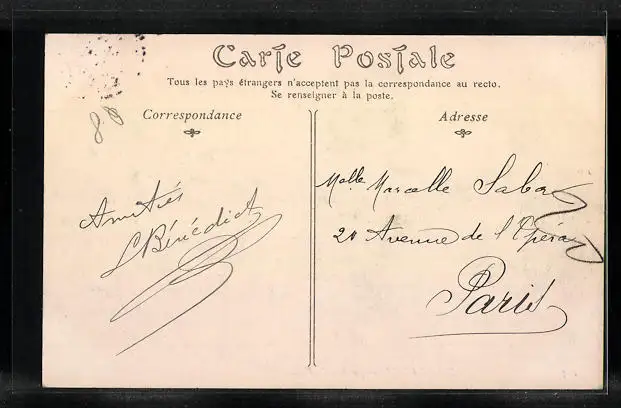 Carte Postale
Tous les pays étrangers n'acceptent pas la correspondance au recto.
Se renseigner à la poste.
Correspondance
Adresse
8
Amitiés
LBénédict
Melle Marcelle Saba
20 Avenue de l'Opera
Paris